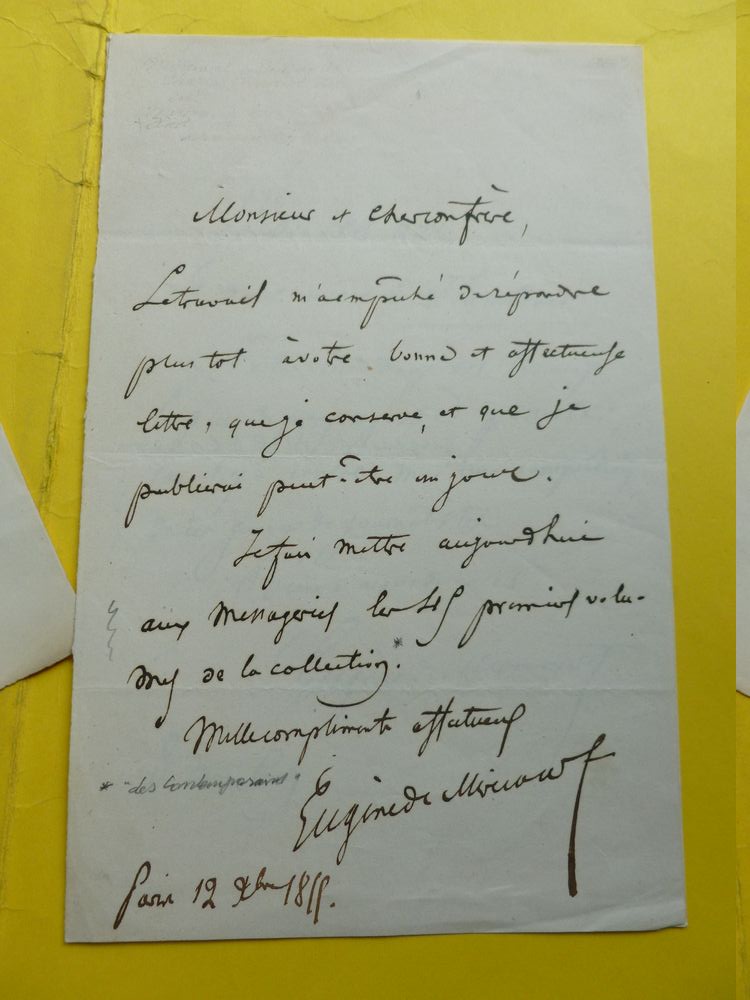 Monsieur et cher confrère,
Le travail m'a empêché de répondre
plus tot à votre bonne et affectueuse
lettre, que je conserve, et que je
publierai peut-être un jour.
Je fais mettre aujourdhui
aux Messageries les premiers volu-
mes de la collection.*
Mille compliments affectueux
* "des Contemporains"
Eugène de Mirecourt
Paris 12 Xbre 1855.